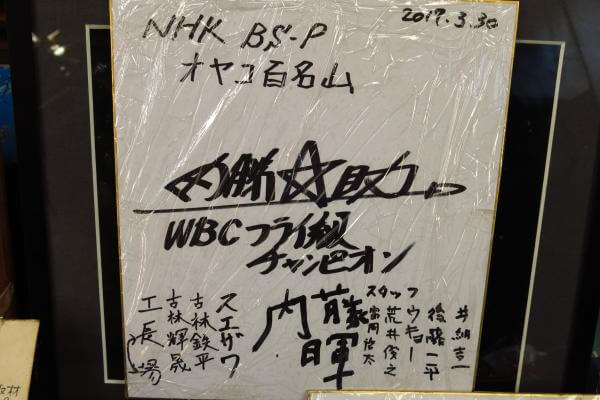 NHK BS-P
2017.3.30
オヤコ百名山
必勝☆
WBCフライ級
チャンピオン
井納吉一
後藤一平
ウキョー
スタッフ
荒井俊之
内藤
スエザワ
吉林鉄平
吉林輝晟
工長場
取材